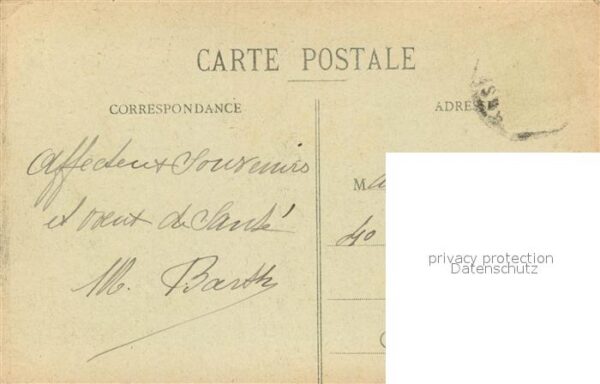 CARTE POSTALE
CORRESPONDANCE
ADRES
Affectueux Souvenirs
et vœux de Santé
M. Barth
Ma
40
privacy protection
Datenschutz